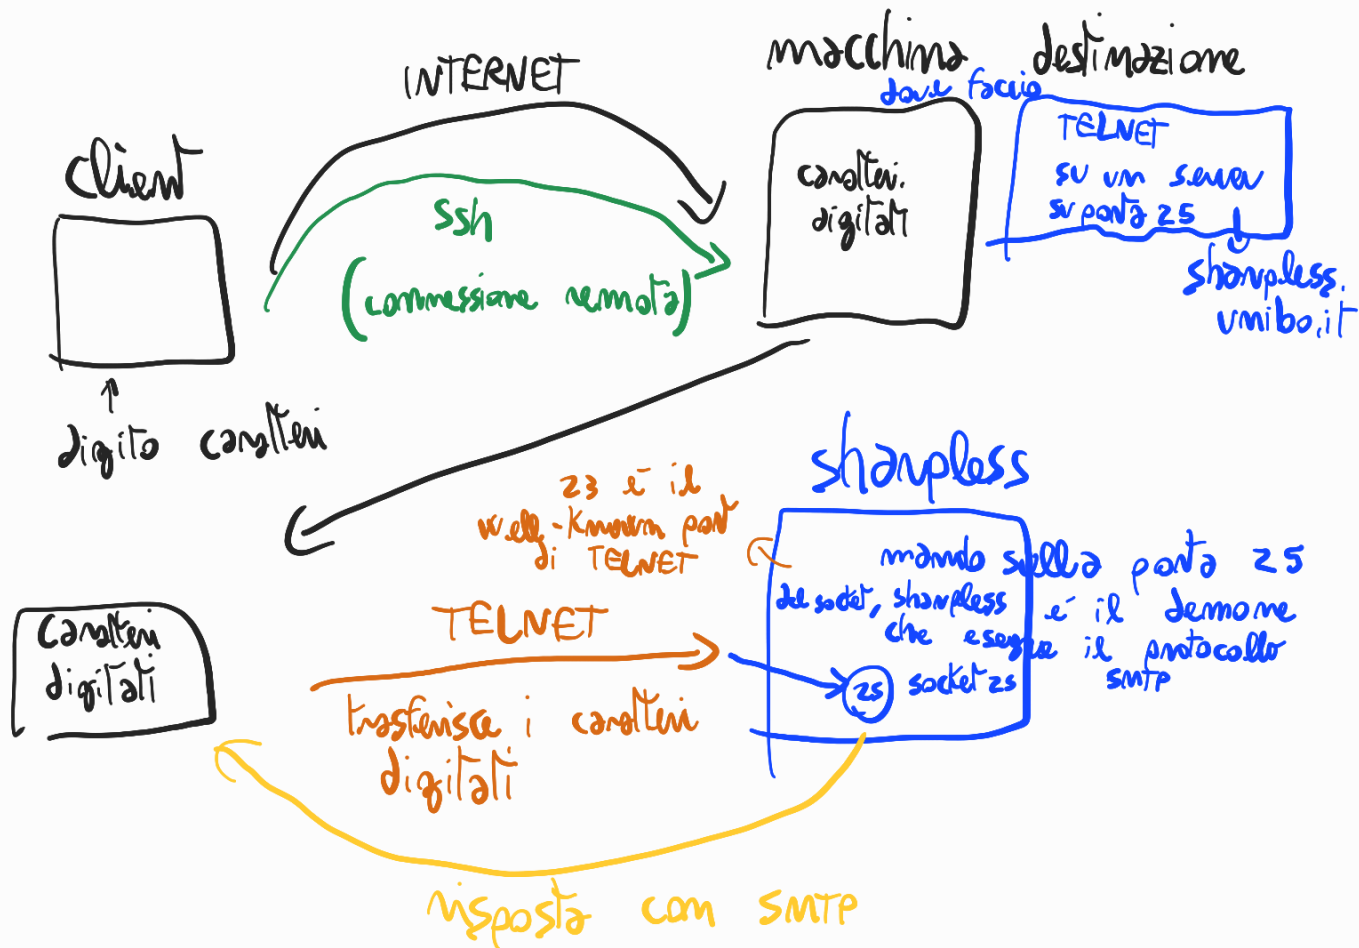 INTERNET
macchina destinazione
dove faccio
client
ssh
(connessione remota)
caratteri
digitati
TELNET
su un server
su porta 25
sharpless.
unibo.it
digito caratteri
sharpless
23 è il
well-known port
di TELNET
mando sulla porta 25
del socket, sharpless è il demone
che esegue il protocollo
SMTP
25 socket 25
caratteri
digitati
TELNET
trasferisce i caratteri
digitati
risposta con SMTP